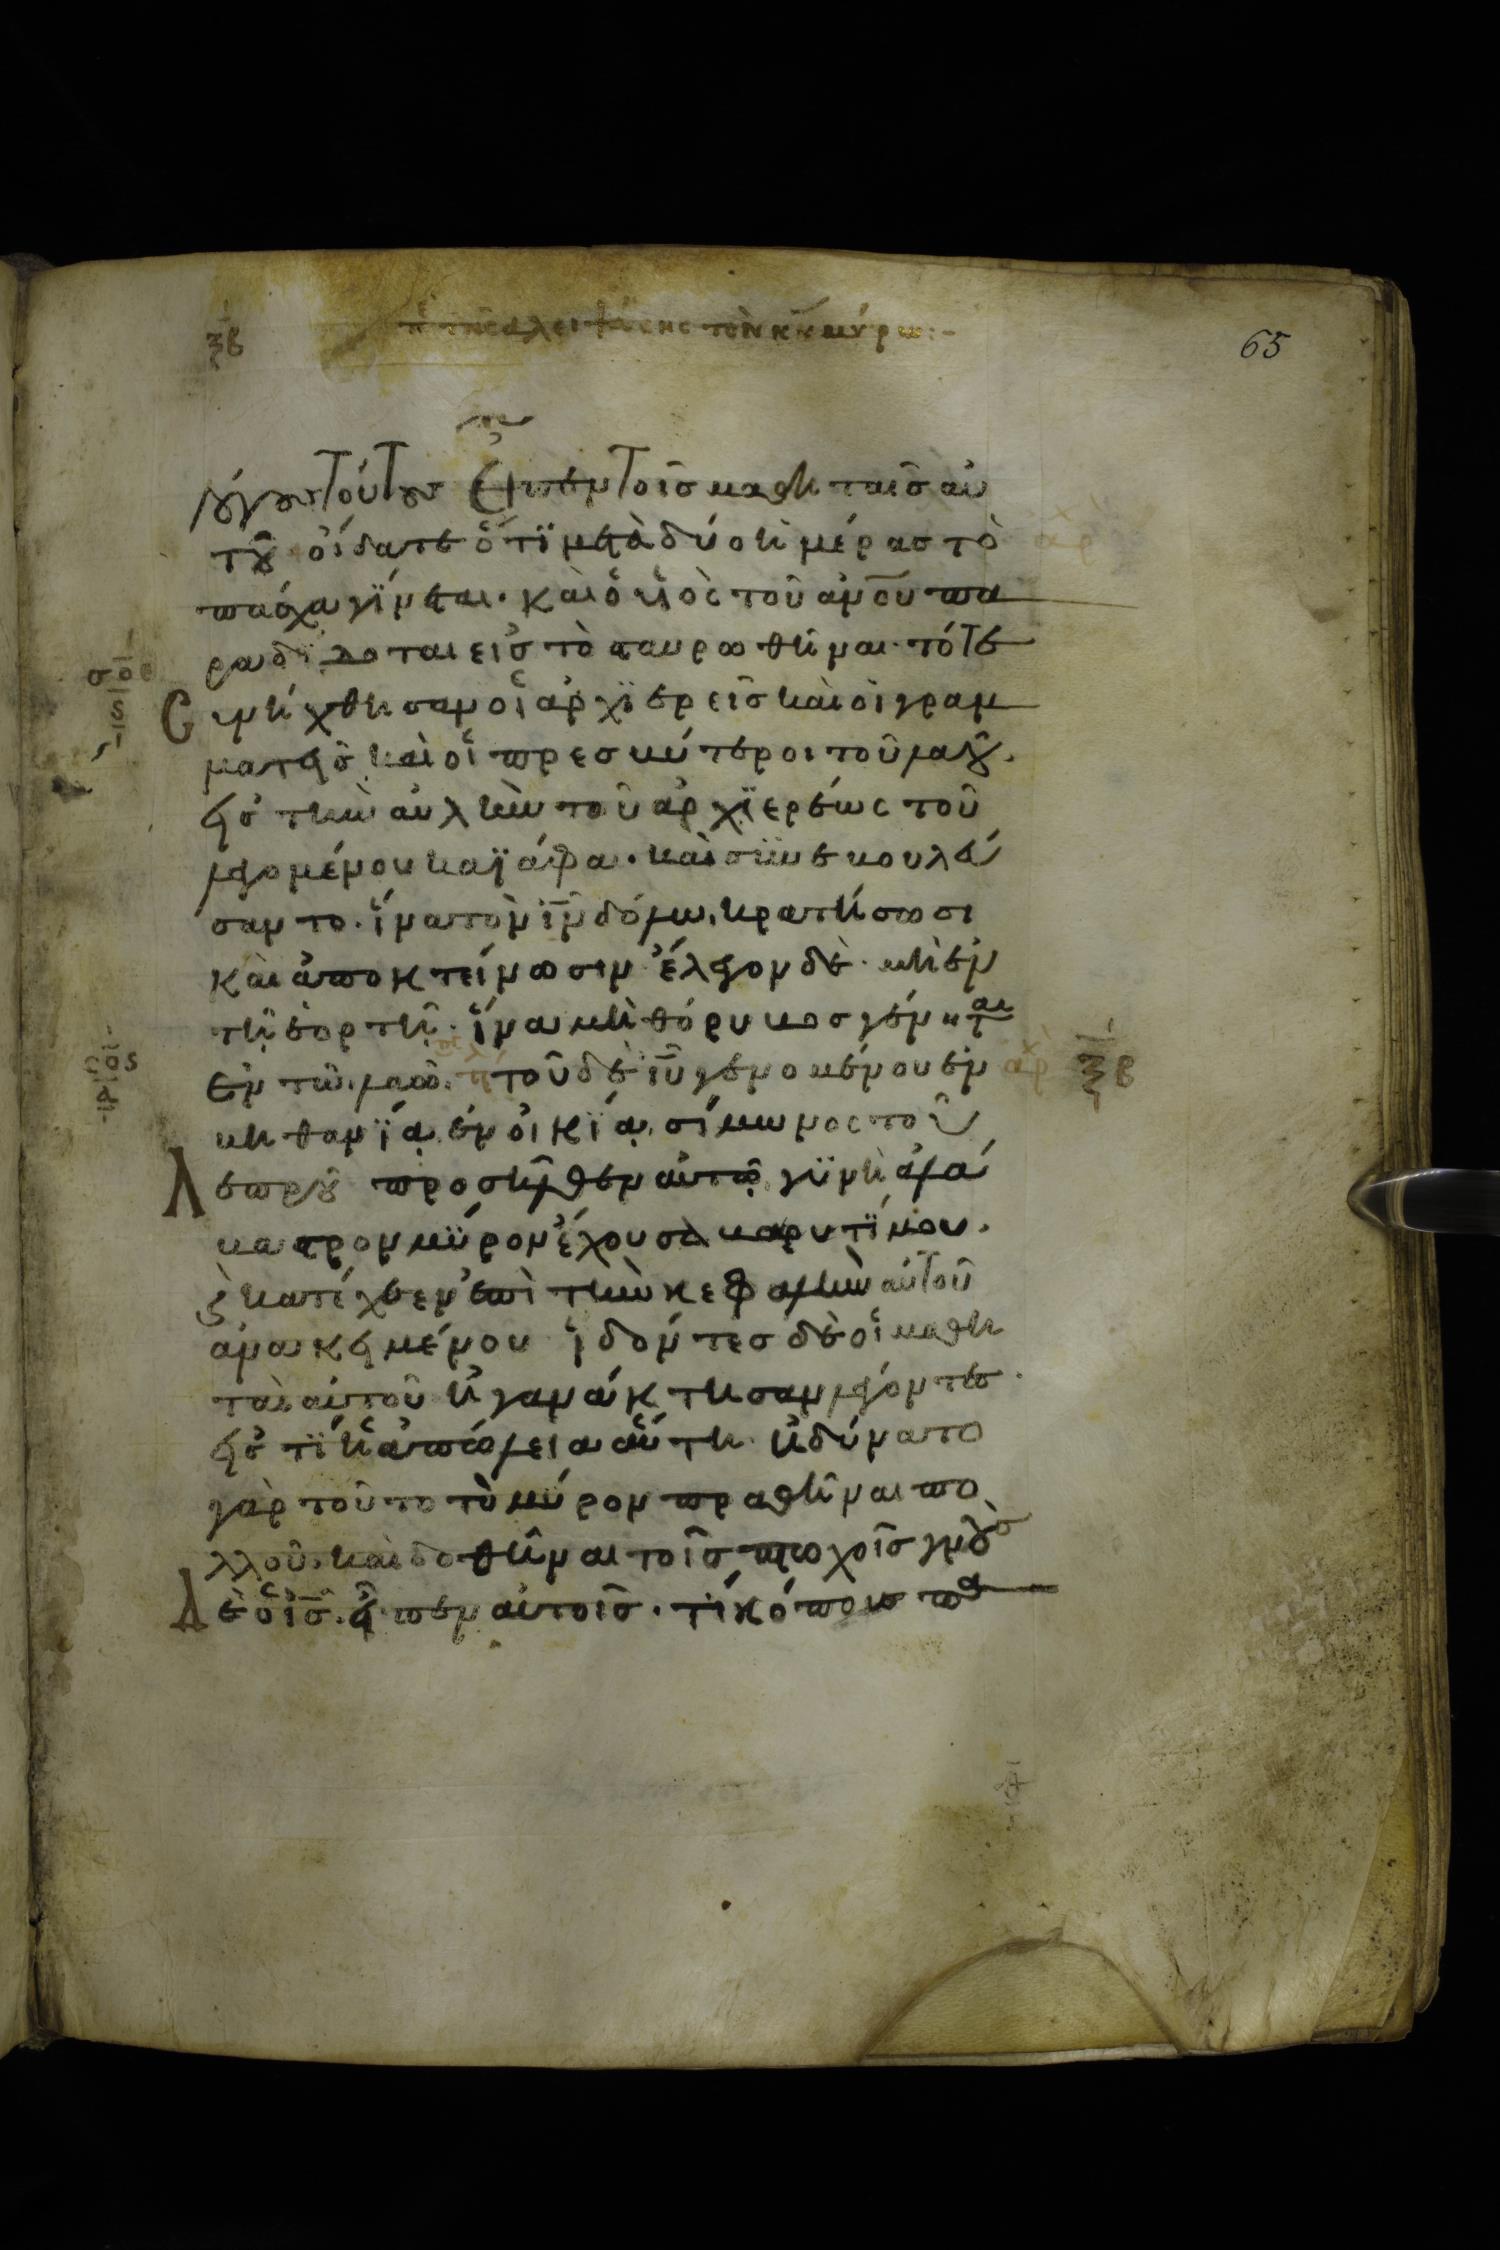 ξβ
π τῆς ἀλειψάσης τὸν κν μύρω:-
65
λόγους τούτους εἶπεν τοῖσ μαθηταῖσ αὐ
τοῦ οἴδατε ὅτϊ μετὰ δύο ἡμέρας τὸ
πάσχα γίνεται· καὶ ὁ υἱὸς τοῦ ἀνου πα
ραδίδοται εἰσ τὸ σταυρωθῆναι· τότε
συνήχθησαν οἱ ἀρχϊερεῖσ καὶ οἱ γραμ
ματεῖσ καὶ οἱ πρεσβύτεροι τοῦ λαοῦ·
εἰσ τὴν αὐλὴν τοῦ ἀρχϊερέως τοῦ
λεγομένου καϊάφα· καὶ συνεβουλεύ
σαντο· ἵνα τὸν ιν δόλω κρατήσωσι
καὶ ἀποκτείνωσιν ἔλεγον δὲ· μὴ ἐν
τῆ ἑορτῆ· ἵνα μὴ θόρυβοσ γένηται
ἐν τῶ λαῶ· τοῦ δὲ ιυ γενομένου ἐν
βηθανϊα ἐν οἰκΐα σίμωνος τοῦ
λεπροῦ προσῆλθεν αὐτῶ γυνὴ ἀλά
βαστρον μύρου ἔχουσα βαρυτίμου·
ϛ κατέχεεν ἐπὶ τὴν κεφαλὴν αὐτοῦ
ἀνακειμένου ἰδόντεσ δὲ οἱ μαθη
ταὶ αὐτοῦ ἠγανάκτησαν λέγοντεσ·
εἰσ τί ἡ ἀπώλεια αὕτη ἠδύνατο
γὰρ τοῦτο τὸ μύρον πραθῆναι πο
λλοῦ· καὶ δοθῆναι τοῖσ πτωχοῖσ γνοὺσ
δὲ ὁ ισ· εἶπεν αὐτοῖσ· τί κόπουσ πα
σοε
ϛ
σος
δ
ξβ
αρχ